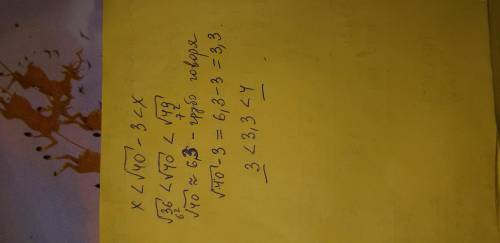 x < √40 - 3 < x
√36 < √40 < √49
6² 7²
√40 ≈ 6,3 - грубо говоря
√40 - 3 = 6,3 - 3 = 3,3.
3 < 3,3 < 4